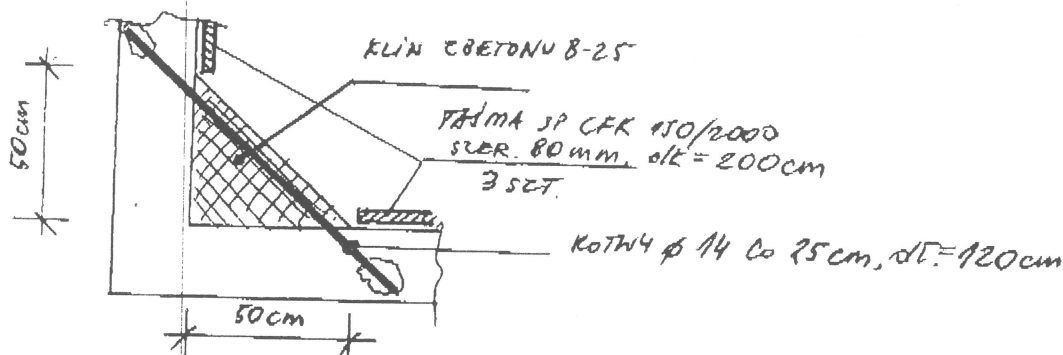 KLIN Z BETONU B-25
TAŚMA SP CFK 150/2000
SZER. 80 mm, dł = 200 cm
3 SZT.
50 cm
KOTWY ϕ 14 Co 25 cm, dł. = 120 cm
50 cm